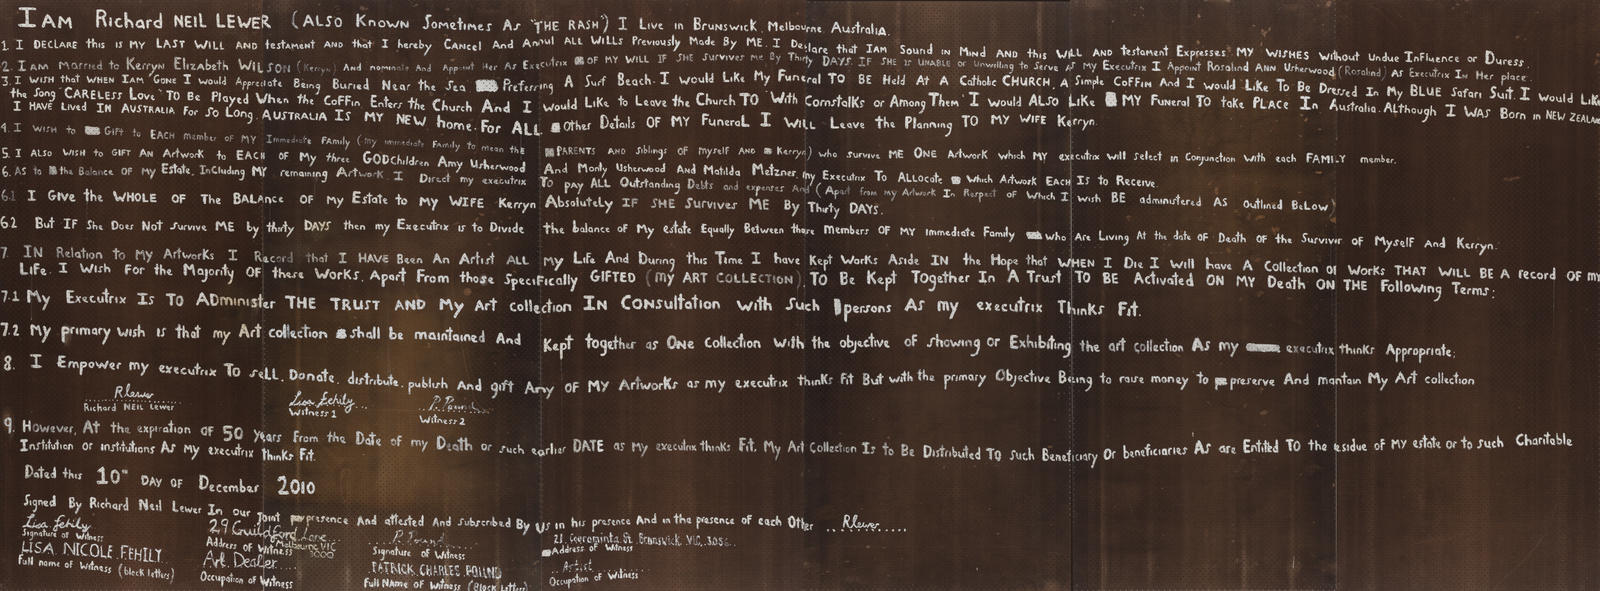 I AM Richard NEIL LEWER (ALSO Known Sometimes As 'THE RASH') I Live in Brunswick, Melbourne, Australia.
1. I DECLARE this is MY LAST WILL AND testament AND that I hereby Cancel And Annul ALL WILLS Previously Made By ME. I Declare that I AM Sound in Mind AND this WILL AND testament Expresses MY WISHES without Undue Influence or Duress.
2. I AM MARRied to Kerryn Elizabeth WILSON (Kerryn) And nominate And Appoint Her As Executrix OF MY WILL IF SHE Survives me By Thirty DAYS. IF SHE is UNABLE or Unwilling to Serve As My Executrix I Appoint Rosalind ANN Usherwood (Rosalind) AS Executrix In Her place.
3. I WISH that WHEN I AM Gone I would Appreciate Being Buried Near the Sea Preferring A Surf Beach. I would Like My Funeral TO BE Held At A Catholic CHURCH, A Simple Coffin And I would Like To Be Dressed In My BLUE Safari Suit. I would Like
the Song 'CARELESS Love' TO Be Played When the Coffin Enters the Church And I would Like to Leave the Church TO 'With Cornstalks or Among Them' I would ALSO Like MY Funeral TO take PLACE In Australia. Although I WAS Born in NEW ZEALAND
I HAVE LIVED IN AUSTRALIA For So Long, AUSTRALIA IS MY NEW home. For ALL Other Details OF MY Funeral I WILL Leave the Planning TO MY WIFE Kerryn.
4. I WISH to Gift to EACH member of MY Immediate Family (my immediate Family to mean the PARENTS AND Siblings of myself AND Kerryn) who survive ME ONE Artwork which MY executrix will select in Conjunction with each FAMILY member.
5. I ALSO WISH to GIFT AN Artwork to EACH OF My three GODchildren Amy Usherwood And Monty Usherwood And Matilda Metzner, my Executrix To ALLocate Which Artwork EACH Is to Receive.
6. AS to the Balance OF My Estate, Including MY remaining Artwork, I Direct my executrix To pay ALL Outstanding Debts and expenses And (Apart from my Artwork In Respect of Which I wish BE administered AS outlined BeLow)
6.1 I Give the WHOLE OF The BALANCE OF My Estate to My WIFE Kerryn Absolutely IF SHE SURVIVES ME By Thirty DAYS.
6.2 But IF She Does Not Survive ME by thirty DAYS then my Executrix is to Divide the balance of My estate Equally Between those Members OF MY Immediate Family who Are Living At the date of Death of the Survivor of Myself and Kerryn.
7. IN Relation to My Artworks I Record that I HAVE Been An Artist ALL my Life And During this Time I have Kept Works Aside IN the Hope that WHEN I Die I will have A Collection of Works THAT WILL BE A record OF my
Life. I Wish For the Majority OF these Works, Apart From those Specifically GIFTED (MY ART COLLECTION) TO Be Kept Together In A Trust TO BE Activated ON MY Death ON THE Following Terms:
7.1 My Executrix Is TO ADminister THE TRUST AND My Art collection IN Consultation with Such persons As my executrix Thinks Fit.
7.2 My primary wish is that my Art collection shall be maintained And Kept together as ONE Collection with the objective of showing or Exhibiting the art collection As my executrix thinks Appropriate;
8. I Empower my executrix To sell, Donate, distribute, publish And gift Any OF MY Artworks as my executrix thinks Fit But with the primary Objective Being to raise money to preserve And mantain My Art collection
RLewer
Richard NEIL Lewer
Lisa Fehily
Witness 1
P. Pound
Witness 2
9. However, At the expiration of 50 years From the Date of my Death or such earlier DATE as my executrix thinks Fit, My Art Collection Is to Be Distributed TO such Beneficiary Or beneficiaries As are Entitled TO the residue of MY estate or to such Charitable
Institution or institutions As My executrix thinks Fit.
Dated this 10th DAY OF December 2010
Signed By Richard Neil Lewer In our Joint presence And attested And Subscribed By Us in his presence And in the presence of each Other RLewer
Lisa Fehily
Signature of Witness
LISA NICOLE FEHILY
Full name of Witness (block letters)
29 Guildford Lane
Melbourne VIC 3000
Address of Witness
Art Dealer
Occupation of Witness
P. Pound
Signature of Witness
PATRICK CHARLES POUND
Full NAME of Witness (Block Letters)
St. Brunswick, VIC, 3056
Address of Witness
Artist
Occupation of Witness